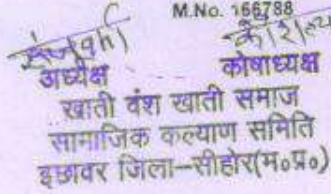 M.No. 166788
अध्यक्ष कोषाध्यक्ष
खाती वंश खाती समाज
सामाजिक कल्याण समिति
इछावर जिला–सीहोर(म०प्र०)